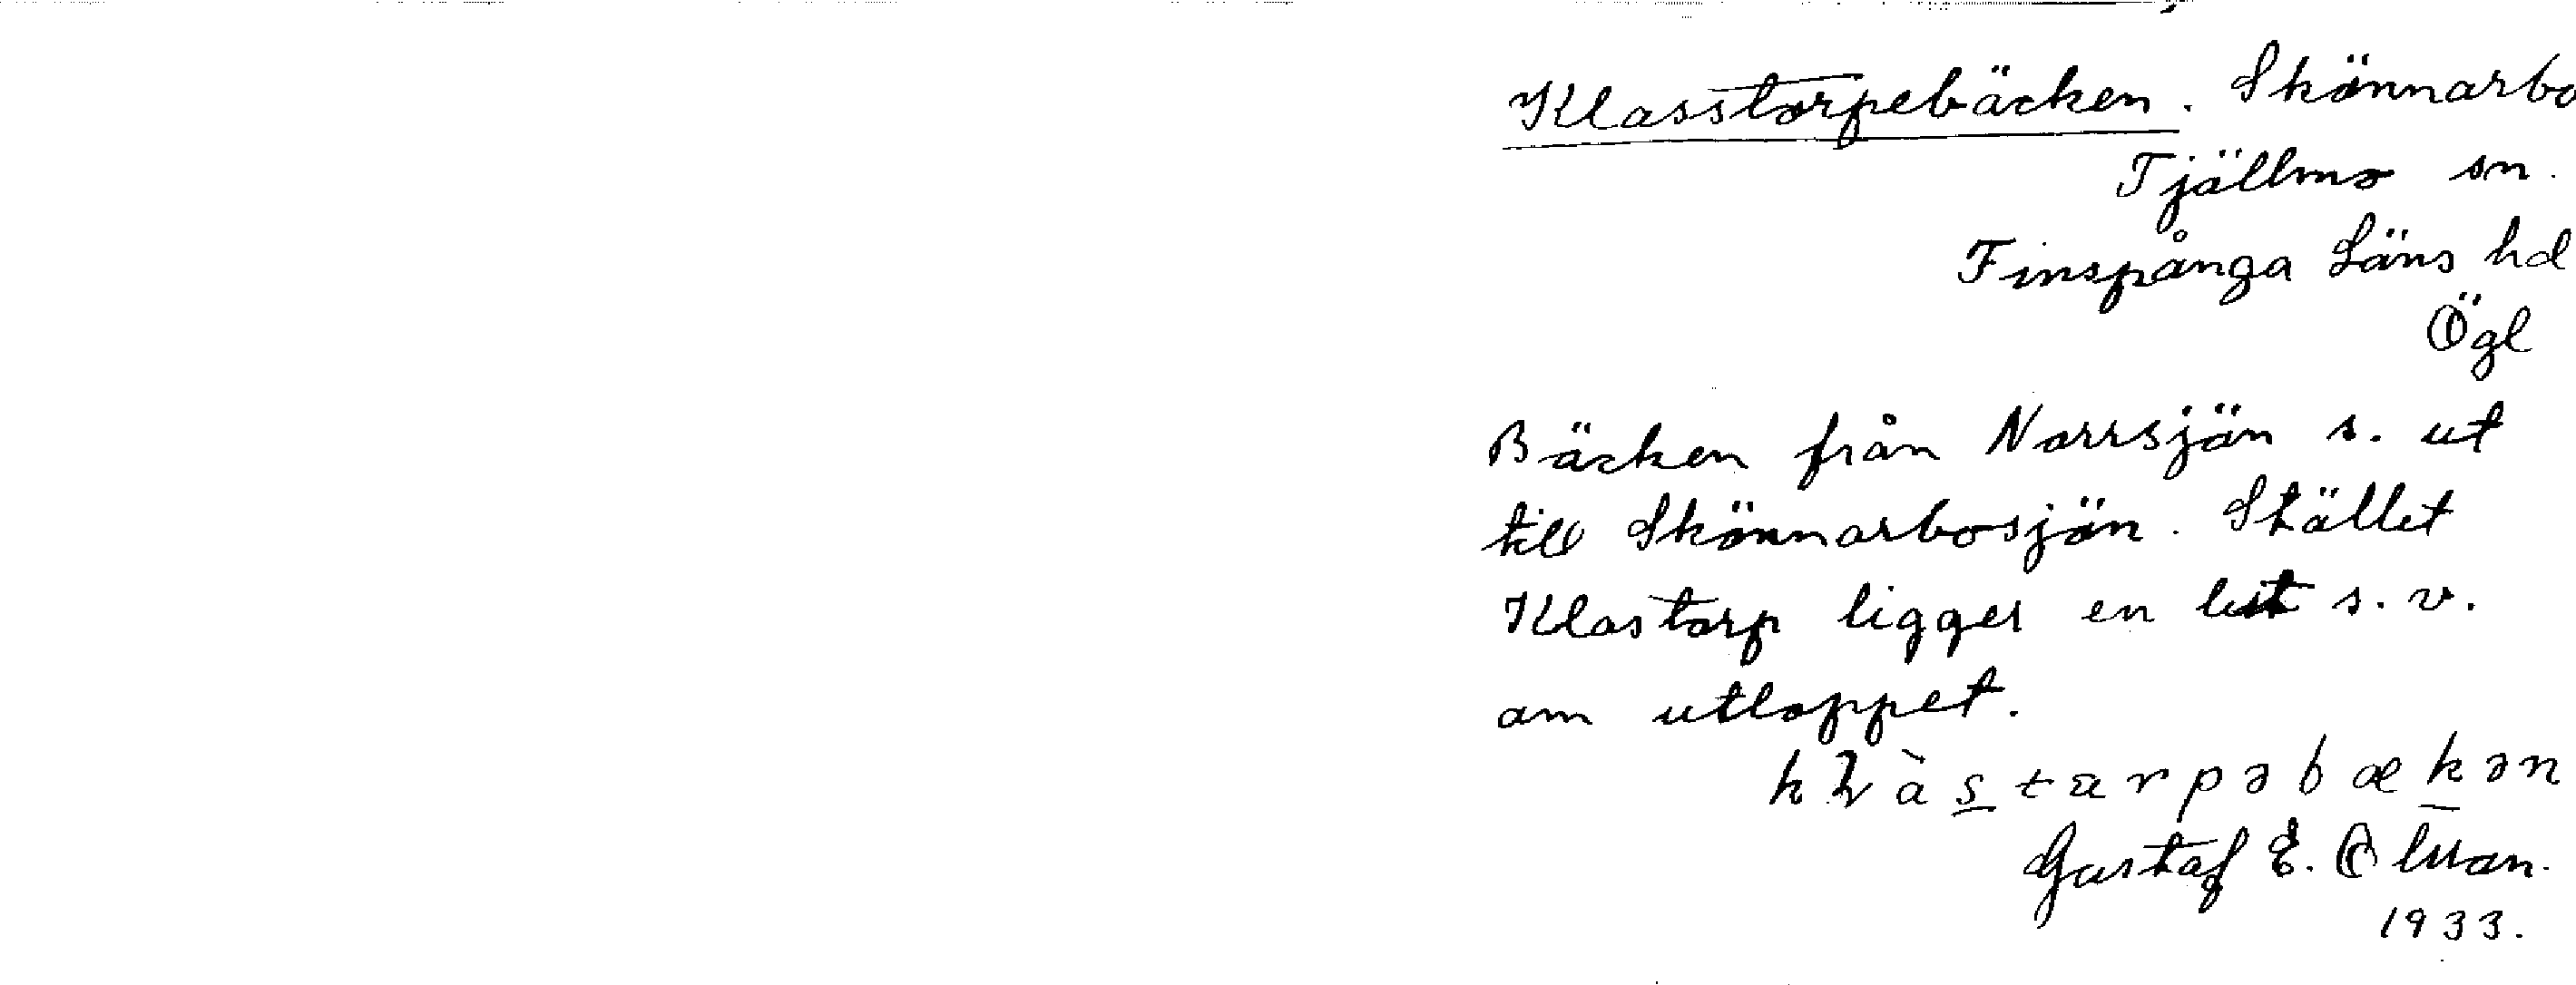 Klasstorpebäcken. Skönnarbo
Tjällmo sn.
Finspånga Läns hd
Ögl
Bäcken från Norrsjön s. ut
till Skönnarbosjön. Stället
Klastorp ligger en bit s.v.
om utloppet.
Gustaf E. Olsson.
1933.